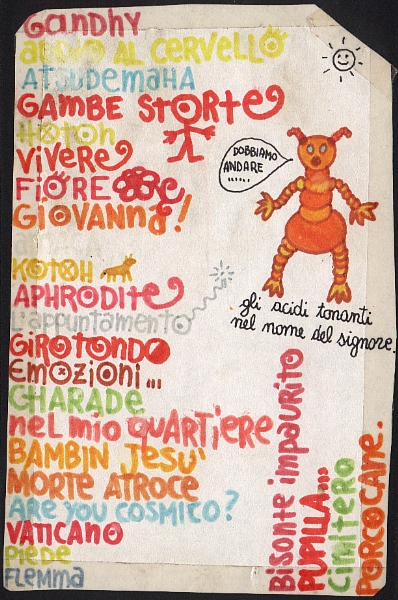 GANDHY
ADDIO AL CERVELLO
ATSUDEMAHA
GAMBE STORTE
HOTOH
VIVERE
FIORE
GIOVANNA!
KOTOH
APHRODITE
L'APPUNTAMENTO
GIROTONDO
EMOZIONI...
CHARADE
NEL MIO QUARTIERE
BAMBIN JESU'
MORTE ATROCE
ARE YOU COSMICO?
VATICANO
PIEDE
FLEMMA
DOBBIAMO
ANDARE
......
gli acidi tonanti
nel nome del signore.
BISONTE IMPAURITO
PUPILLA...
CIMITERO
PORCOCANE.